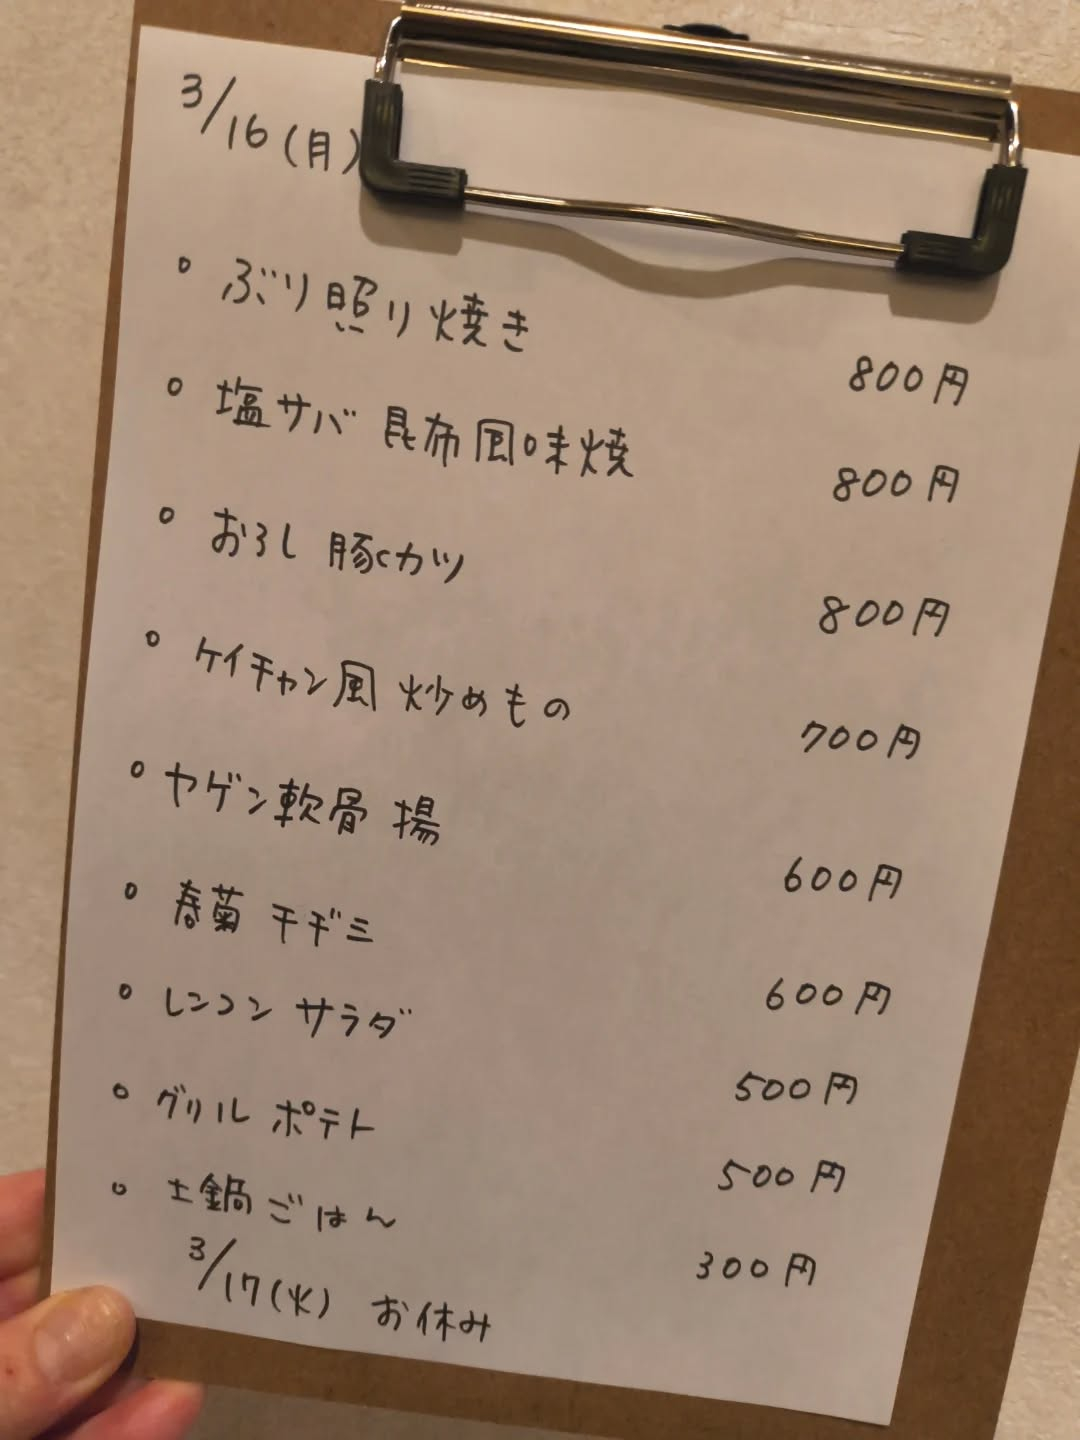 3/16(月)
° ぶり照り焼き 800円
° 塩サバ 昆布風味焼 800円
° おろし 豚cカツ 800円
° ケイチャン風 炒めもの 700円
° ヤゲン軟骨 揚 600円
° 春菊 チヂミ 600円
° レンコン サラダ 500円
° グリル ポテト 500円
° 土鍋ごはん 300円
3/17(火) お休み